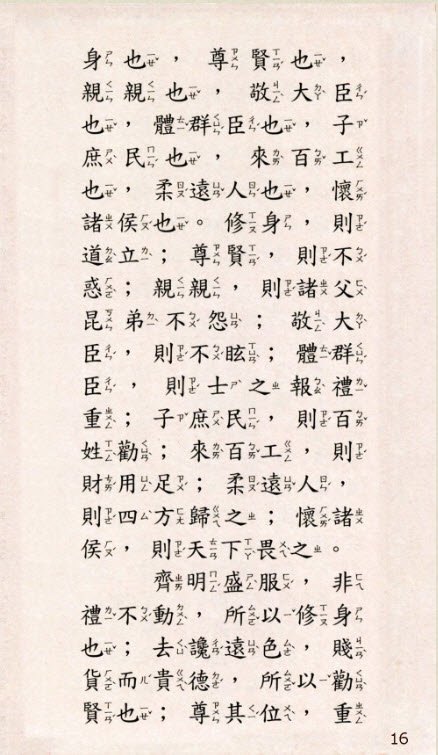 身也，尊賢也，
親親也，敬大臣
也，體群臣也，子
庶民也，來百工
也，柔遠人也，懷
諸侯也。修身，則
道立；尊賢，則不
惑；親親，則諸父
昆弟不怨；敬大
臣，則不眩；體群
臣，則士之報禮
重；子庶民，則百
姓勸；來百工，則
財用足；柔遠人，
則四方歸之；懷諸
侯，則天下畏之。
齊明盛服，非
禮不動，所以修身
也；去讒遠色，賤
貨而貴德，所以勸
賢也；尊其位，重
16